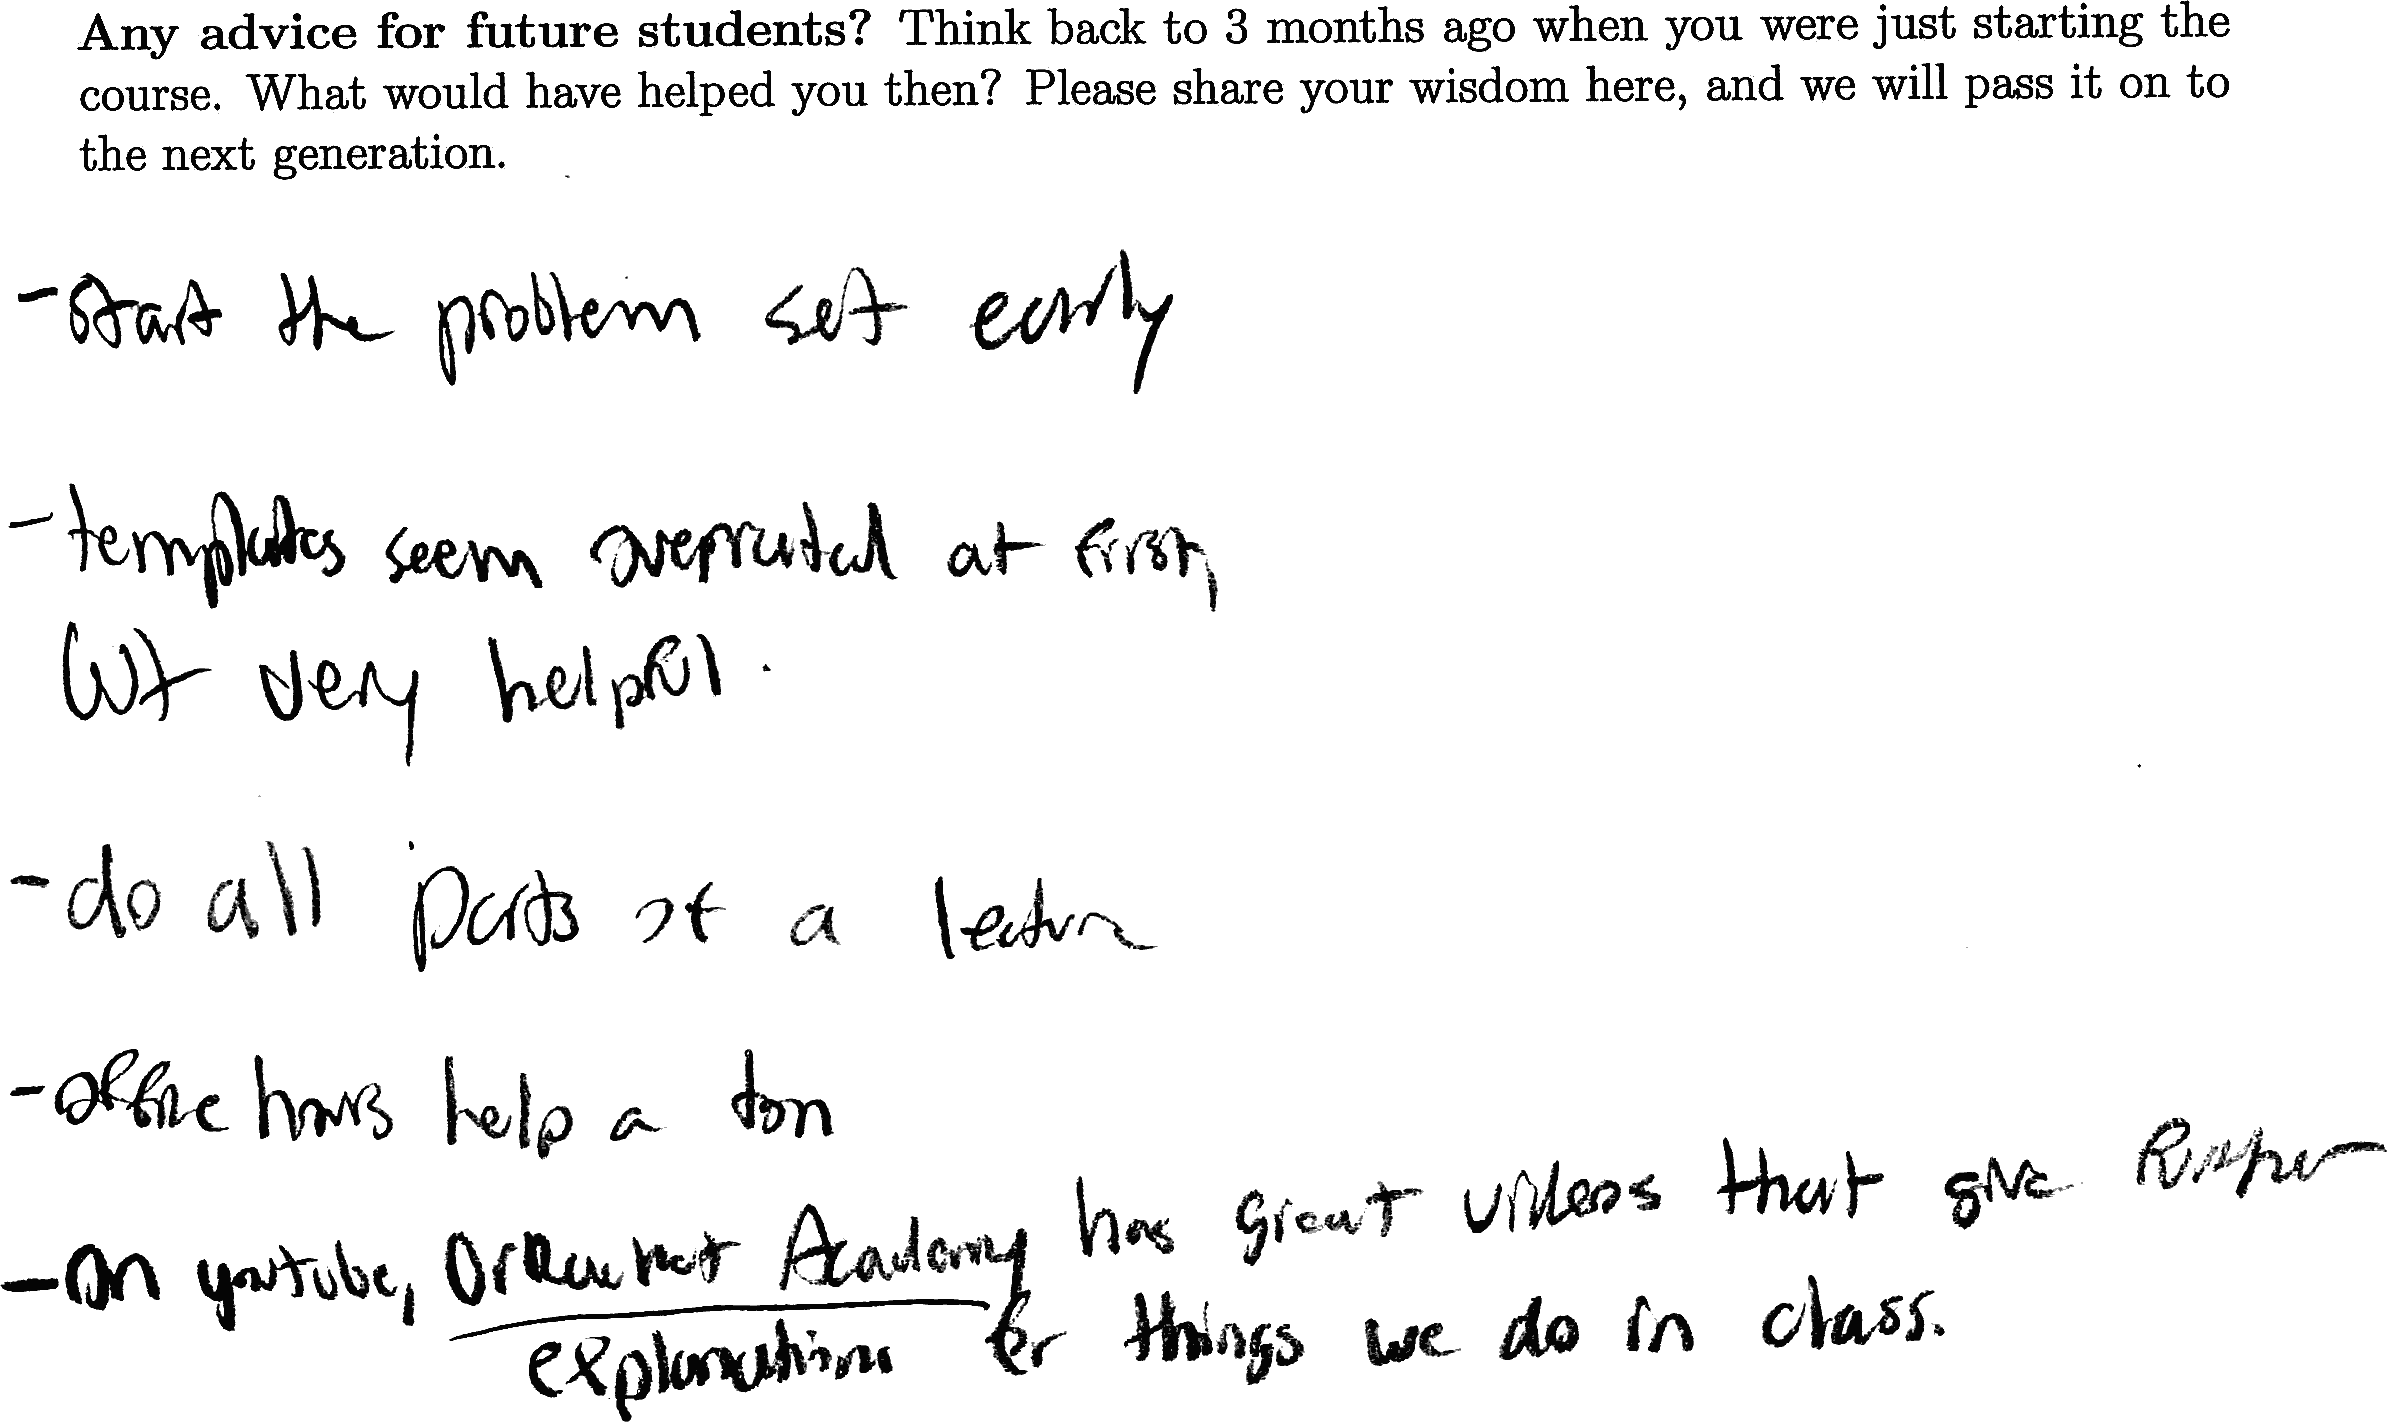 Any advice for future students? Think back to 3 months ago when you were just starting the
course. What would have helped you then? Please share your wisdom here, and we will pass it on to
the next generation.
- start the problem set early
- templates seem overrated at first,
but very helpful.
- do all parts of a lecture
- office hours help a ton
- on youtube, Academy has great videos that give
explanations for things we do in class.